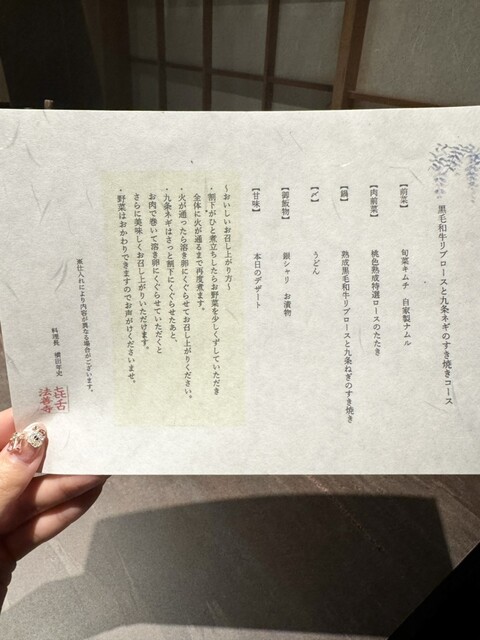 黒毛和牛リブロースと九条ネギのすき焼きコース
【前菜】 旬菜キムチ 自家製ナムル
【肉前菜】 桃色熟成特選ロースのたたき
【鍋】 熟成黒毛和牛リブロースと九条ねぎのすき焼き
【〆】 うどん
【御飯物】 銀シャリ お漬物
【甘味】 本日のデザート
～おいしいお召し上がり方～
・割下がひと煮立ちしたらお野菜を少しくずしていただき
全体に火が通るまで再度煮ます。
・火が通ったら溶き卵にくぐらせてお召し上がりください。
・九条ネギはさっと割下にくぐらせたあと、
お肉で巻いて溶き卵にくぐらせていただくと
さらに美味しくお召し上がりいただけます。
・野菜はおかわりできますのでお声がけくださいませ。
※仕入れにより内容が異なる場合がございます。
料理長 横田
㐂舌
法善寺